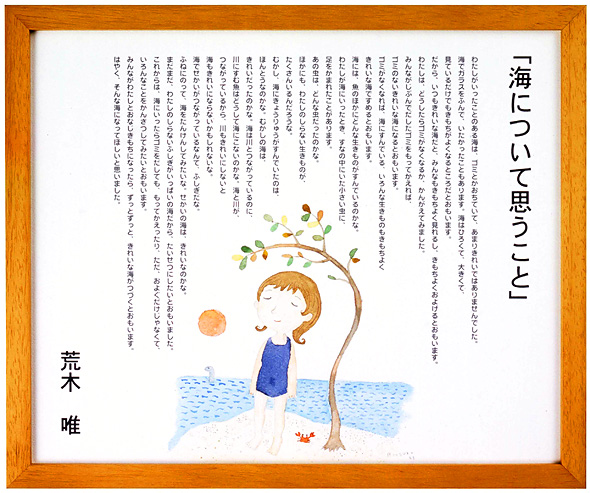 「海について思うこと」
わたしがいったことのある海は、ゴミとかおちていて、あまりきれいではありませんでした。
海でガラスをふんで、いたかったこともあります。海はひろくて、大きくて、
見ているだけでもきもちがよくなるところだとおもいます。
だから、いつもきれいな海だと、みんなもきもちよく見れるし、きもちよくおよげるとおもいます。
わたしは、どうしたらゴミがなくなるか、かんがえてみました。
みんながじぶんでだしたゴミをもってかえれば、
ゴミのないきれいな海になるとおもいます。
ゴミがなくなれば、海にすんでいる、いろんな生きものもきもちよく
きれいな海ですめるとおもいます。
海には、魚のほかにどんな生きものがすんでいるのかな。
わたしが海にいったとき、すなの中にいた小さい虫に、
足をかまれたことがあります。
あの虫は、どんな虫だったのかな。
ほかにも、わたしのしらない生きものが、
たくさんいるんだろうな。
むかし、海にきょうりゅうがすんでいたのは、
ほんとうなのかな。むかしの海は、
きれいだったのかな。海は川とつながっているのに、
川にすむ魚はどうして海にこないのかな。海と川が、
つながっているから、川もきれいにしないと
海もきれいにならないかもしれないな。
海でせかいがつながっているなんて、ふしぎだな。
ふねにのって、海をたんけんしてみたいな。せかいの海は、きれいなのかな。
まだまだ、わたしのしらないふしぎがいっぱいの海だから、たいせつにしたいとおもいました。
これからは、海にいったらゴミをだしても、もってかえったり、ただ、およぐだけじゃなくて、
いろんなことをかんさつしてみたいとおもいます。
みんながわたしとおなじきもちになったら、ずっとずっと、きれいな海がつづくとおもいます。
はやく、そんな海になってほしいと思いました。
荒木 唯